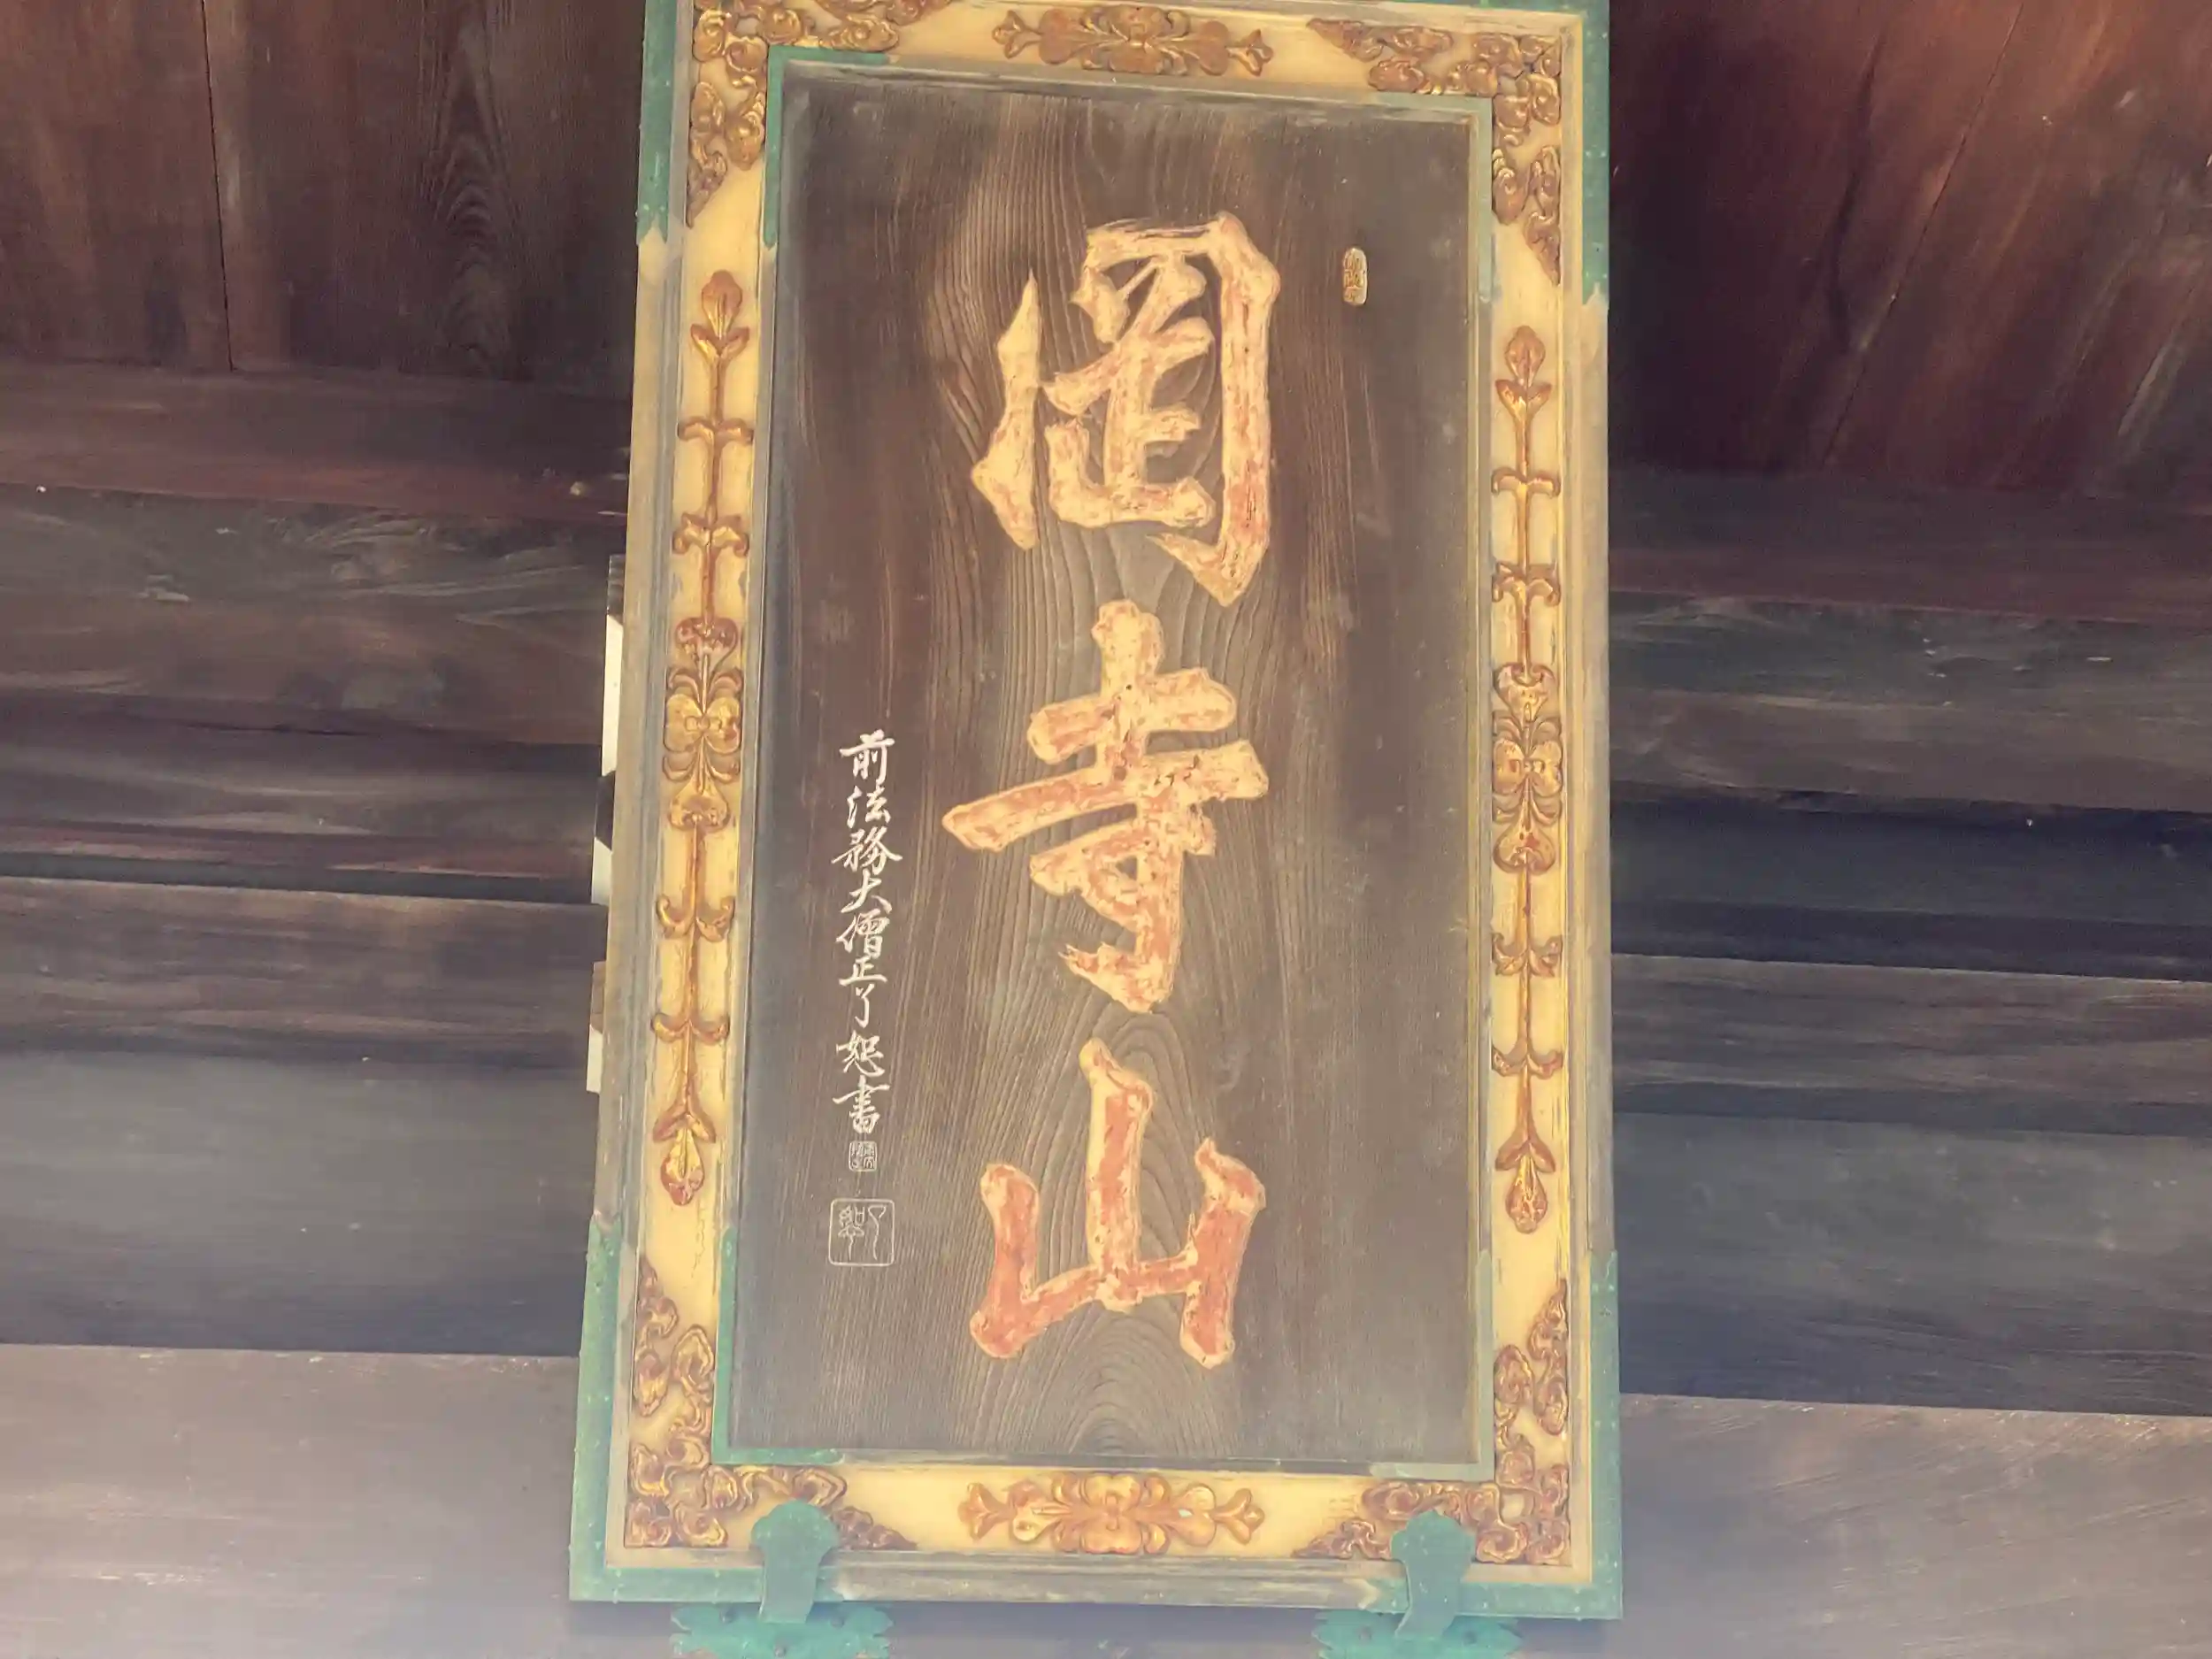 岡寺山
前法務大僧正了恕書